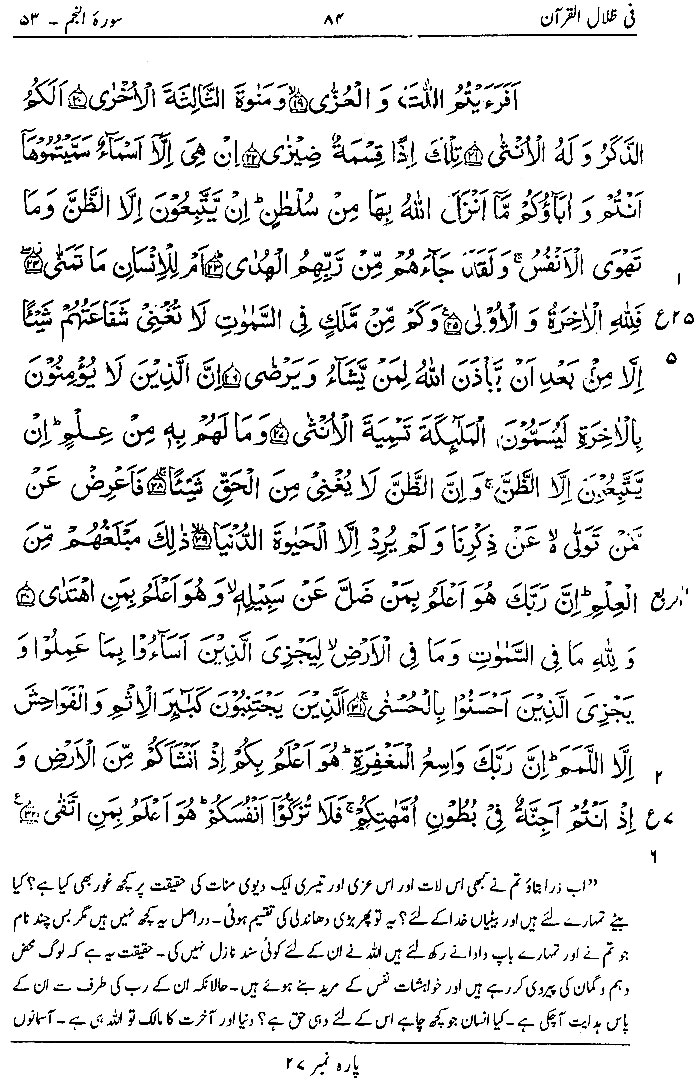 فی ظلال القرآن ۸۴ سورۃ النجم ۔ ۵۳
اَفَرَءَيْتُمُ اللّٰتَ وَ الْعُزّٰى ﴿۱۹﴾ وَمَنٰوةَ الثَّالِثَةَ الْاُخْرٰى ﴿۲۰﴾ اَلَكُمُ
الذَّكَرُ وَ لَهُ الْاُنْثٰى ﴿۲۱﴾ تِلْكَ اِذًا قِسْمَةٌ ضِيْزٰى ﴿۲۲﴾ اِنْ هِيَ اِلَّاۤ اَسْمَآءٌ سَمَّيْتُمُوْهَاۤ
اَنْتُمْ وَ اٰبَآؤُكُمْ مَّاۤ اَنْزَلَ اللّٰهُ بِهَا مِنْ سُلْطٰنٍ ؕ اِنْ يَّتَّبِعُوْنَ اِلَّا الظَّنَّ وَمَا
تَهْوَى الْاَنْفُسُ ۚ وَلَقَدْ جَآءَهُمْ مِّنْ رَّبِّهِمُ الْهُدٰى ﴿۲۳﴾ اَمْ لِلْاِنْسَانِ مَا تَمَنّٰى ﴿۲۴﴾
۱
فَلِلّٰهِ الْاٰخِرَةُ وَ الْاُوْلٰى ﴿۲۵﴾ وَكَمْ مِّنْ مَّلَكٍ فِى السَّمٰوٰتِ لَا تُغْنِىْ شَفَاعَتُهُمْ شَيْئًا ع۲۵
۵
اِلَّا مِنْۢ بَعْدِ اَنْ يَّاْذَنَ اللّٰهُ لِمَنْ يَّشَآءُ وَيَرْضٰى ﴿۲۶﴾ اِنَّ الَّذِيْنَ لَا يُؤْمِنُوْنَ
بِالْاٰخِرَةِ لَيُسَمُّوْنَ الْمَلٰٓئِكَةَ تَسْمِيَةَ الْاُنْثٰى ﴿۲۷﴾ وَمَا لَهُمْ بِهٖ مِنْ عِلْمٍ ؕ اِنْ
يَّتَّبِعُوْنَ اِلَّا الظَّنَّ ۚ وَاِنَّ الظَّنَّ لَا يُغْنِىْ مِنَ الْحَقِّ شَيْئًا ﴿۲۸﴾ فَاَعْرِضْ عَنْ
مَّنْ تَوَلّٰى ۙ عَنْ ذِكْرِنَا وَ لَمْ يُرِدْ اِلَّا الْحَيٰوةَ الدُّنْيَا ﴿۲۹﴾ ذٰلِكَ مَبْلَغُهُمْ مِّنَ
الْعِلْمِ ؕ اِنَّ رَبَّكَ هُوَ اَعْلَمُ بِمَنْ ضَلَّ عَنْ سَبِيْلِهٖ ۙ وَهُوَ اَعْلَمُ بِمَنِ اهْتَدٰى ﴿۳۰﴾ الربع
وَ لِلّٰهِ مَا فِى السَّمٰوٰتِ وَمَا فِى الْاَرْضِ ۙ لِيَجْزِىَ الَّذِيْنَ اَسَآءُوْا بِمَا عَمِلُوْا وَ
يَجْزِىَ الَّذِيْنَ اَحْسَنُوْا بِالْحُسْنٰى ﴿۳۱﴾ اَلَّذِيْنَ يَجْتَنِبُوْنَ كَبٰٓئِرَ الْاِثْمِ وَ الْفَوَاحِشَ
اِلَّا اللَّمَمَ ؕ اِنَّ رَبَّكَ وَاسِعُ الْمَغْفِرَةِ ؕ هُوَ اَعْلَمُ بِكُمْ اِذْ اَنْشَاَكُمْ مِّنَ الْاَرْضِ وَ
۲
اِذْ اَنْتُمْ اَجِنَّةٌ فِىْ بُطُوْنِ اُمَّهٰتِكُمْ ۚ فَلَا تُزَكُّوْۤا اَنْفُسَكُمْ ؕ هُوَ اَعْلَمُ بِمَنِ اتَّقٰى ﴿۳۲﴾ ع۷
۶
”اب ذرا بتاؤ تم نے کبھی اس لات اور اس عزی اور تیسری ایک دیوی منات کی حقیقت پر کچھ غور بھی کیا ہے؟ کیا
بیٹے تمہارے لئے ہیں اور بیٹیاں خدا کے لئے؟ یہ تو پھر بڑی دھاندلی کی تقسیم ہوئی ۔ دراصل یہ کچھ نہیں ہیں مگر بس چند نام
جو تم نے اور تمہارے باپ دادا نے رکھ لئے ہیں اللہ نے ان کے لئے کوئی سند نازل نہیں کی ۔ حقیقت یہ ہے کہ لوگ محض
وہم و گمان کی پیروی کر رہے ہیں اور خواہشات نفس کے مرید بنے ہوئے ہیں ۔ حالانکہ ان کے رب کی طرف سے ان کے
پاس ہدایت آ چکی ہے ۔ کیا انسان جو کچھ چاہے اس کے لئے وہی حق ہے؟ دنیا اور آخرت کا مالک تو اللہ ہی ہے ۔ آسمانوں
پارہ نمبر ۲۷